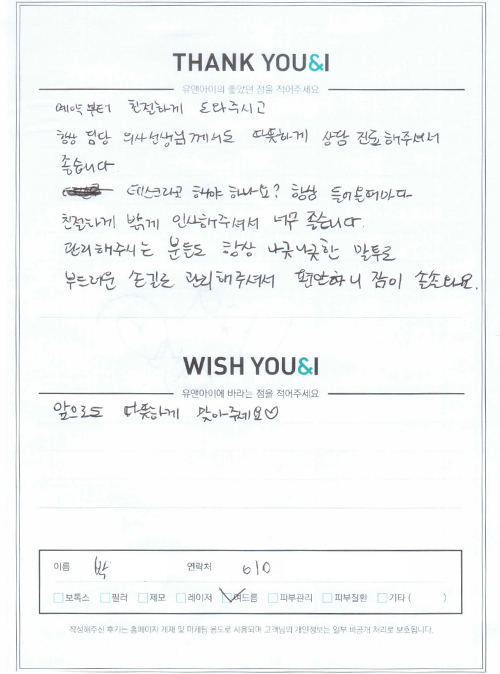 THANK YOU&I
유앤아이의 좋았던 점을 적어주세요
예약부터 친절하게 도와주시고
항상 담당 의사선생님께서도 따뜻하게 상담 진료해주셔서
좋습니다
데스크라고 해야 하나요? 항상 들어올때마다
친절하게 밝게 인사해주셔서 너무 좋습니다.
관리해주시는 분들도 항상 나긋나긋한 말투로
부드러운 손길로 관리해주셔서 편안하니 잠이 솔솔와요.
WISH YOU&I
유앤아이에 바라는 점을 적어주세요
앞으로도 따뜻하게 맞아주세요♡
이름 박 연락처 010
보톡스 필러 제모 레이저 여드름 피부관리 피부질환 기타 ( )
작성해주신 후기는 홈페이지 게재 및 마케팅 용도로 사용되며 고객님의 개인정보는 일부 비공개 처리로 보호됩니다.